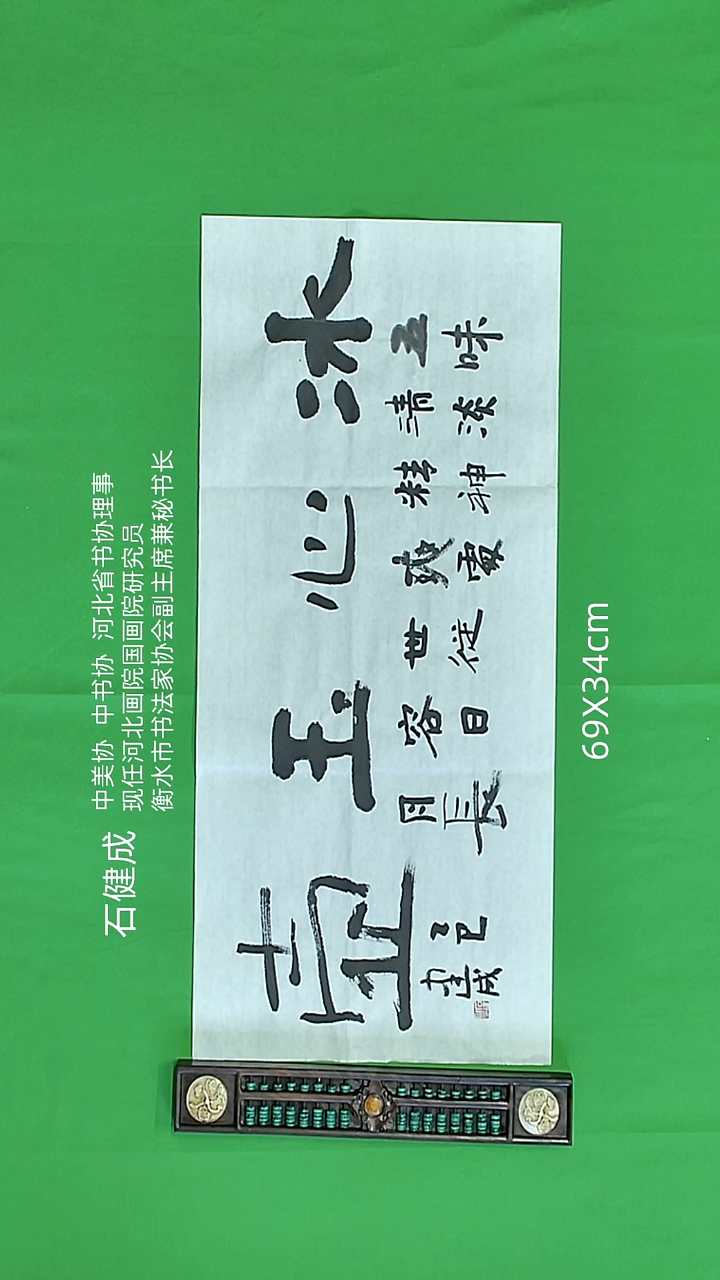 石健成
中美协 中书协 河北省书协理事
现任河北画院国画院研究员
衡水市书法家协会副主席兼秘书长
冰心玉壶
五味
清淡
精神
爽處
世從
容日
月長
乙巳
健成
69X34cm